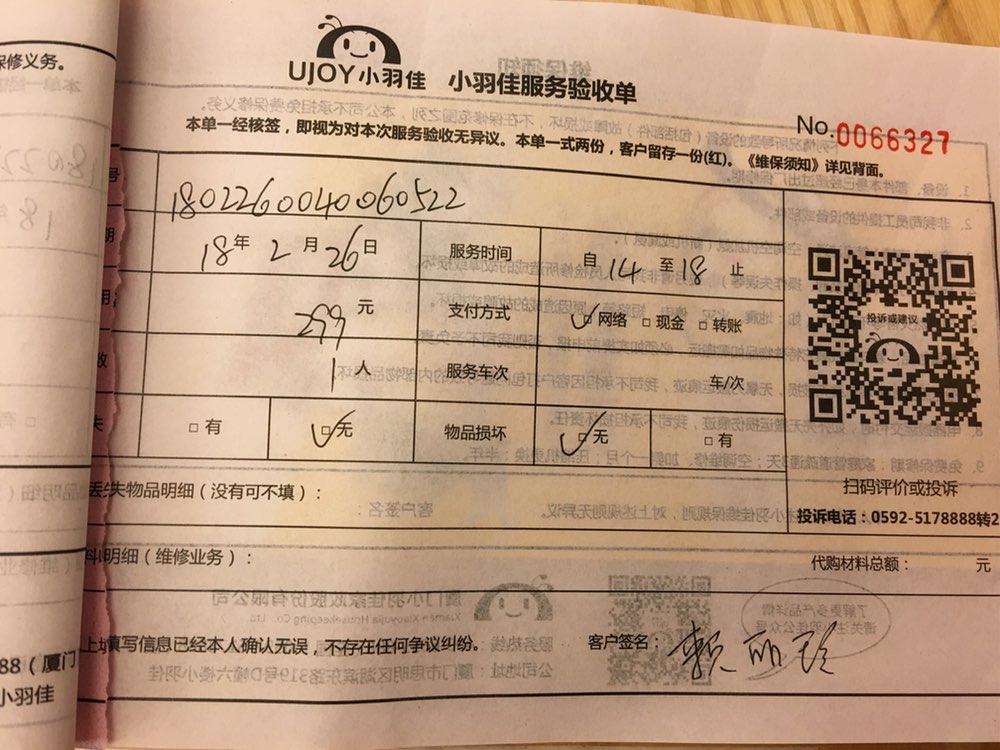 保修义务。
UJOY小羽佳 小羽佳服务验收单
No.0066327
本单一经核签，即视为对本次服务验收无异议。本单一式两份，客户留存一份(红)。《维保须知》详见背面。
号 1802260040060522
期 18年2月26日 服务时间 自14至18止
投诉或建议
299元 支付方式 ☑网络 □现金 □转账
数 1人 服务车次 车/次
失 □有 ☑无 物品损坏 ☑无 □有
扫码评价或投诉
丢失物品明细（没有可不填）：
投诉电话：0592-5178888转2
料明细（维修业务）： 代购材料总额： 元
上填写信息已经本人确认无误，不存在任何争议纠纷。 客户签名：赖丽珍
88（厦门
小羽佳